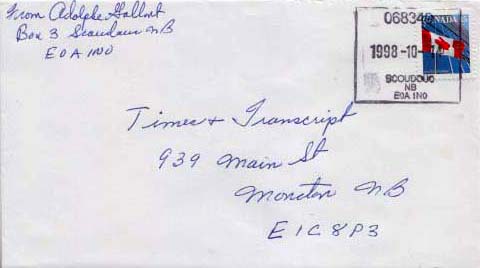 From Adolphe Gallant
Box 3 Scoudouc NB
E0A 1N0
068349
CANADA
1998-10-
SCOUDOUC
NB
E0A 1N0
Times & Transcript
939 Main St
Moncton NB
E1C 8P3